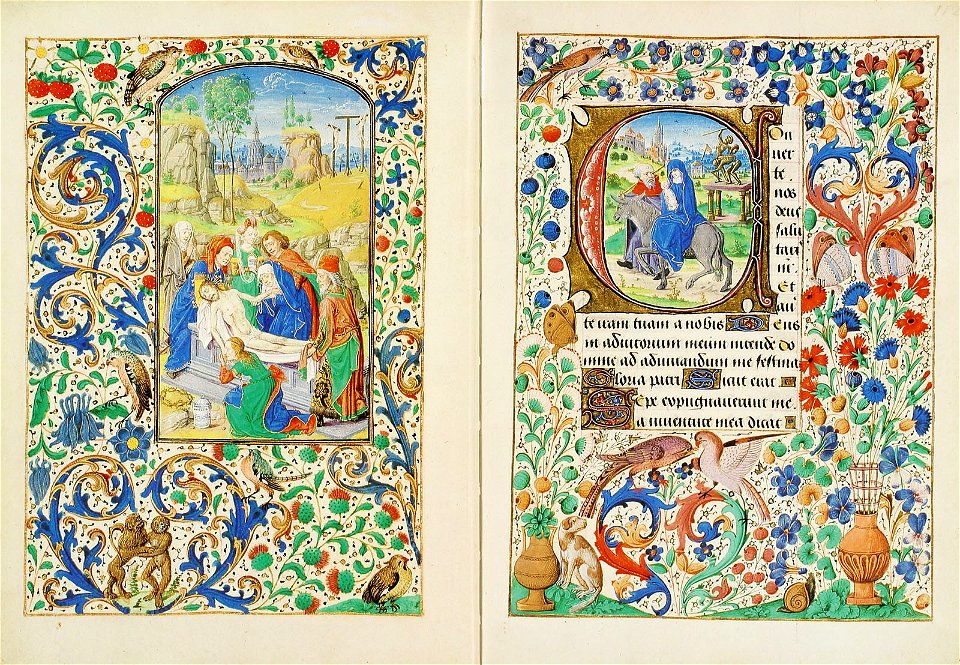 Con
uer
te
nos
deus
salu
taris
Et
te iram tuam a nobis Deus
in adiutorium meum intende do
mine ad adiuuandum me festina
Gloria patri Sicut erat
Sepe expugnauerunt me
a iuuentute mea dicat